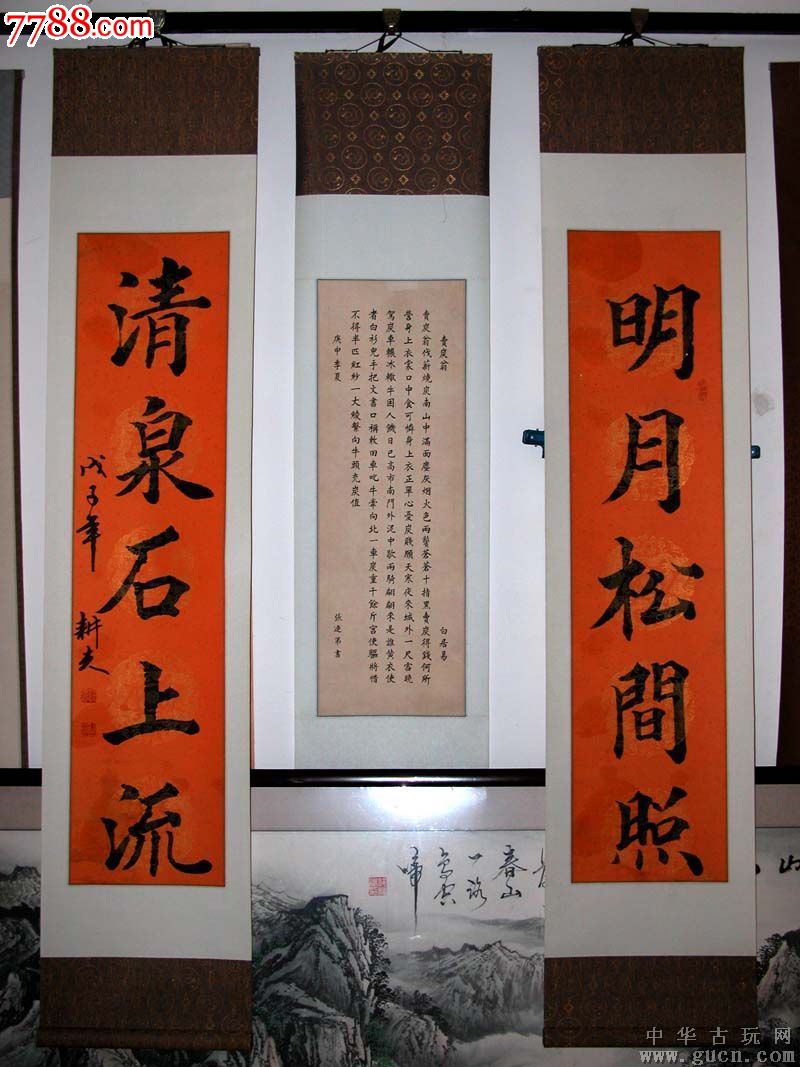 7788.com
明月松間照
賣炭翁 白居易
賣炭翁伐薪燒炭南山中滿面塵灰烟火色兩鬢蒼蒼十指黑賣炭得錢何所
營身上衣裳口中食可憐身上衣正單心憂炭賤願天寒夜來城外一尺雪曉
駕炭車輾冰轍牛困人饑日已高市南門外泥中歇兩騎翩翩來是誰黃衣使
者白衫兒手把文書口稱敕回車叱牛牽向北一車炭重千餘斤宮使驅將惜
不得半匹紅紗一丈綾繫向牛頭充炭值
庚申季夏 張 第書
清泉石上流
戊子年 耕夫
春山
一路
鳥空
啼
中华古玩网
www.gucn.com